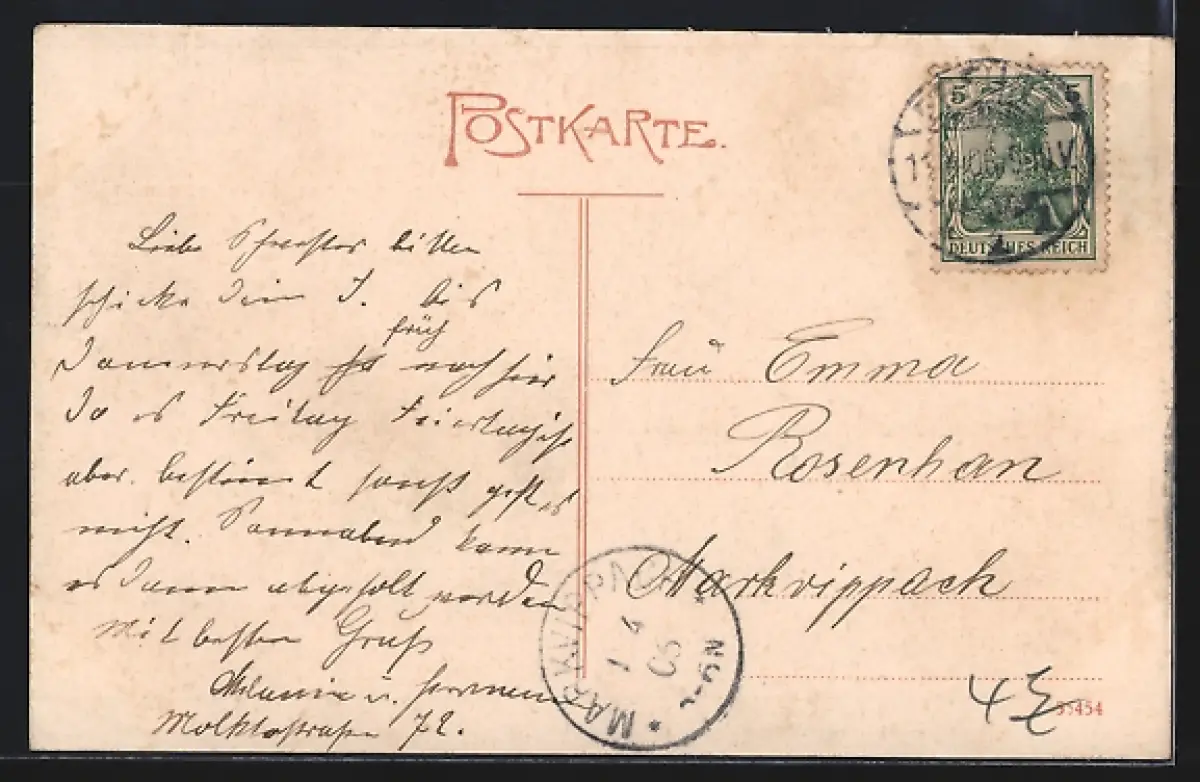 POSTKARTE.
5 5
DEUTSCHES REICH
Liebe Schwester bitten
schicke dein J. bis
früh
Donnerstag nach hier
da es Freitag Feiertag ist
aber bestimt sonst geht es
nicht. Sonnabend kann
es dann abgeholt werden
Mit besten Gruß
Melanie u. Hermann
Moltkestraße 72.
Frau Emma
Rosenhan
Markvippach
MARKVIPPACH
1 4
06
* 7-8N *
35454